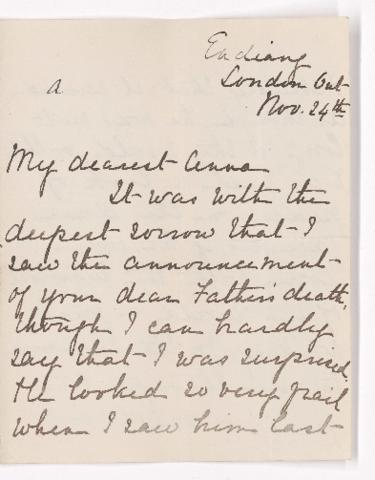 a
Endiang
London Ont
Nov. 24th
My dearest Anna
It was with the
deepest sorrow that I
saw the announcement
of your dear Father's death,
though I can hardly
say that I was surprised.
He looked so very frail
when I saw him last